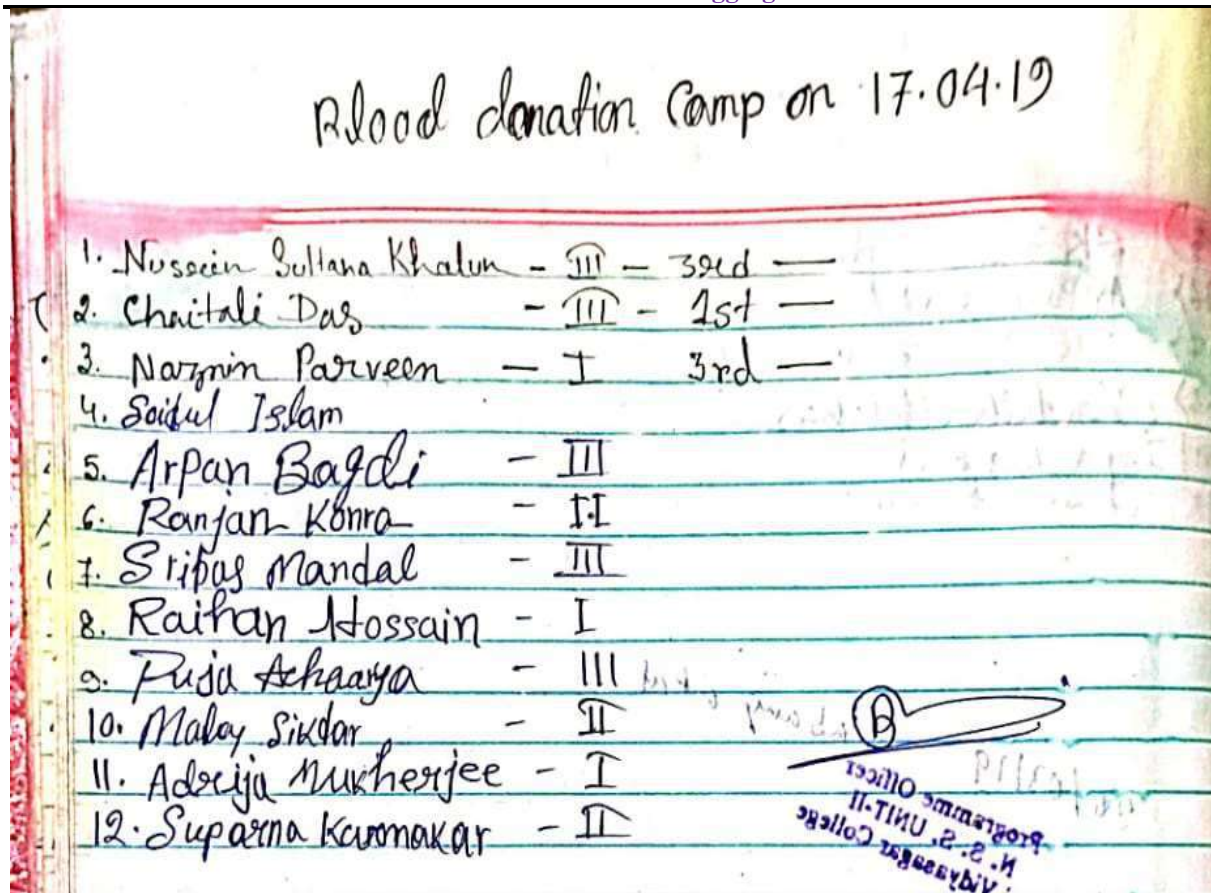 Blood donation Camp on 17.04.19
1. Nussein Sultana Khatun - III - 3rd —
2. Chaitali Das - III - 1st —
3. Naznin Parveen - I 3rd —
4. Saidul Islam
5. Arpan Bagdi - III
6. Ranjan Konra - II
7. Sripas Mandal - III
8. Raihan Hossain - I
9. Puja Achaarya - III
10. Maloy Sikdar - II
11. Adrija Mukherjee - I
12. Suparna Karmakar - II
Programme Officer
N. S. S. UNIT-II
Vidyasagar College